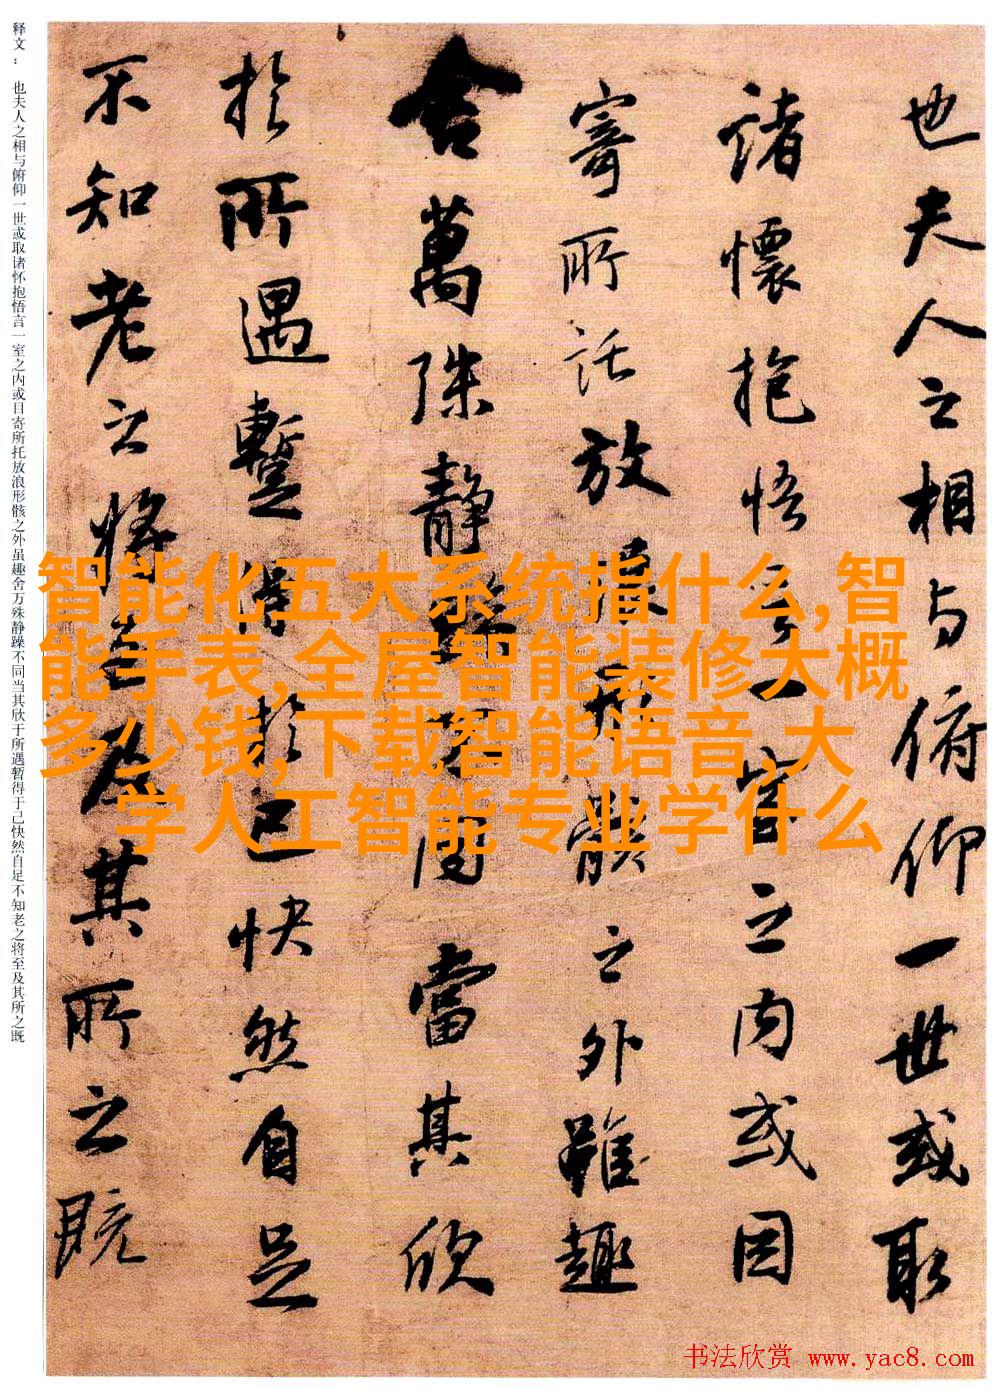 也夫人之相与俯仰一世或取
諸懷抱悟言一室之内或因
寄所託放浪形骸之外雖趣
舍萬殊靜躁不同當其欣
於所遇暫得於己快然自足
不知老之將至及其所之既
释文： 也夫人之相与俯仰一世或取诸怀抱悟言一室之内或目寄所托放浪形骸之外虽趣舍万殊静躁不同当其欣于所遇暂得于己快然自足不知老之将至及其所之既
智能化五大系统指什么,智
能手表,全屋智能装修大概
多少钱,下载智能语音,大
学人工智能专业学什么
书法欣赏 www.yac8.com